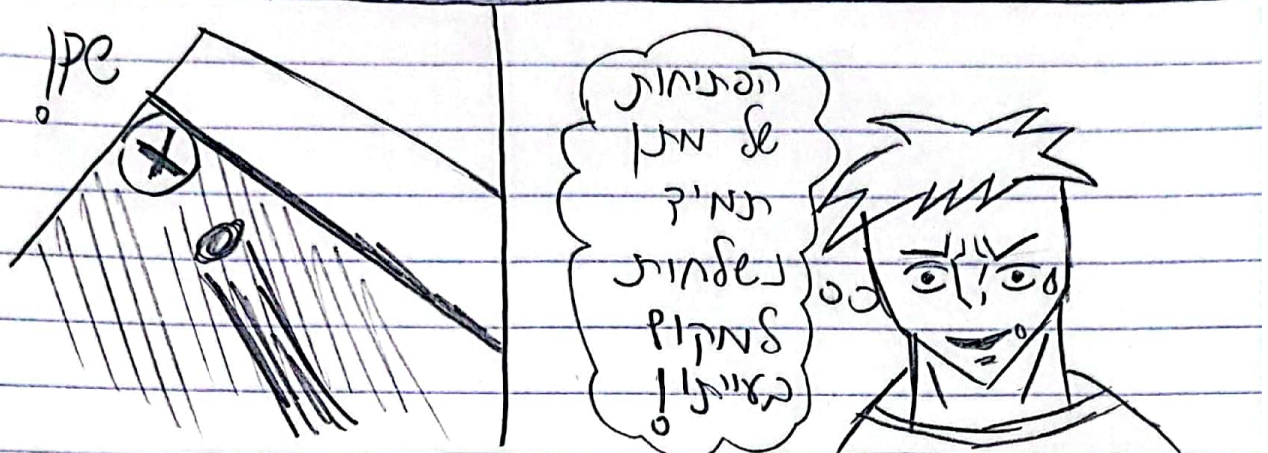 הפתיחות
של מתן
תמיד
נשלחות
למקום
בעייתי!
שק!